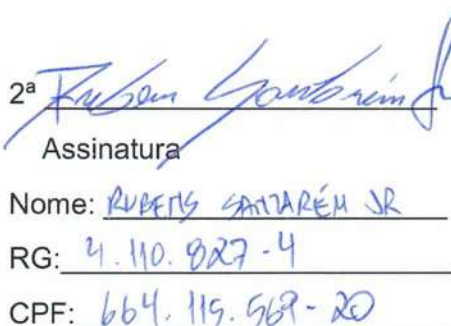 2ª Rubens Santarém Jr
Assinatura
Nome: RUBENS SANTARÉM JR
RG: 4.110.827-4
CPF: 664.115.569-20